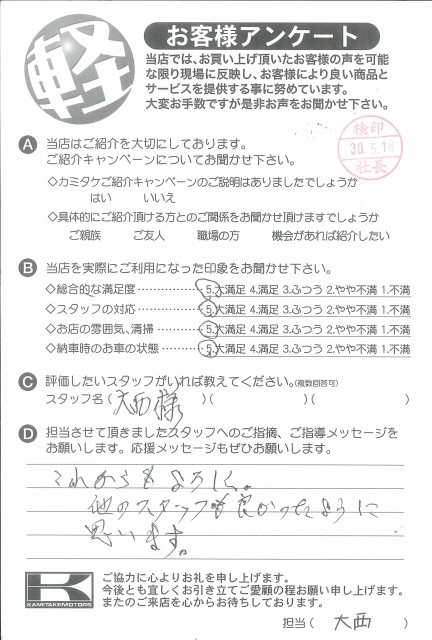 軽
お客様アンケート
当店では、お買い上げ頂いたお客様の声を可能
な限り現場に反映し、お客様により良い商品と
サービスを提供する事に努めています。
大変お手数ですが是非お声をお聞かせ下さい。
検印
30.5.18
社長
A 当店はご紹介を大切にしております。
ご紹介キャンペーンについてお聞かせ下さい。
◇カミタケご紹介キャンペーンのご説明はありましたでしょうか
はい いいえ
◇具体的にご紹介頂ける方とのご関係をお聞かせ頂けますでしょうか
ご親族 ご友人 職場の方 機会があれば紹介したい
B 当店を実際にご利用になった印象をお聞かせ下さい。
◇総合的な満足度……………5.大満足 4.満足 3.ふつう 2.やや不満 1.不満
◇スタッフの対応……………5.大満足 4.満足 3.ふつう 2.やや不満 1.不満
◇お店の雰囲気、清掃………5.大満足 4.満足 3.ふつう 2.やや不満 1.不満
◇納車時のお車の状態………5.大満足 4.満足 3.ふつう 2.やや不満 1.不満
C 評価したいスタッフがいれば教えてください。(複数回答可)
スタッフ名(大西様)( )( )
D 担当させて頂きましたスタッフへのご指摘、ご指導メッセージを
お願いします。応援メッセージもぜひお願いします。
これからもよろしく。
他のスタッフも良かったように
思います。
K
KAMITAKEMOTORS
ご協力に心よりお礼を申し上げます。
今後とも宜しくお引き立てご愛顧の程お願い申し上げます。
またのご来店を心からお待ちしております。
担当( 大西 )